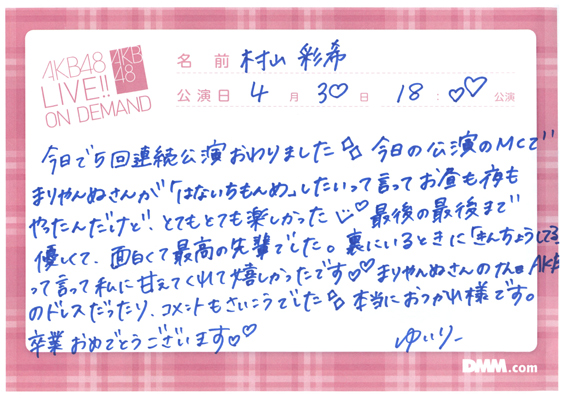 AKB48
LIVE!!
ON DEMAND
AKB
48
名前 村山 彩希
公演日 4月 30日 18:00 公演
今日で5回連続公演おわりました 今日の公演のMCで
まりやんぬさんが「はないちもんめ」したいって言ってお昼も夜も
やったんだけど、とてもとても楽しかった 最後の最後まで
優しくて、面白くて最高の先輩でした。裏にいるときに「きんちょうしてる」
って言って私に甘えてくれて嬉しかったです♡♡まりやんぬさんの AKB
のドレスだったり、コメントもさいこうでした 本当におつかれ様です。
卒業おめでとうございます♡♡ ゆいりー
DMM.com